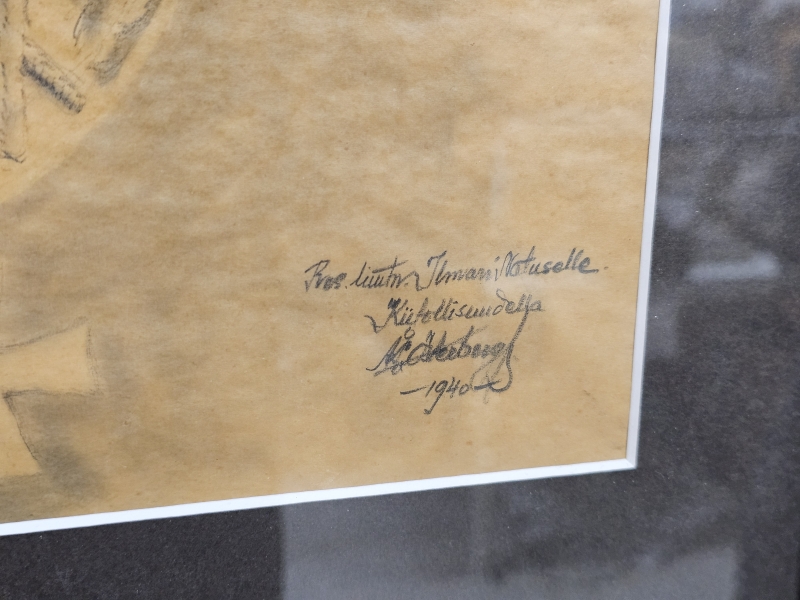 Res. luutn. Ilmari Natuselle.
Kiitollisuudella
Åkerberg
—1940—